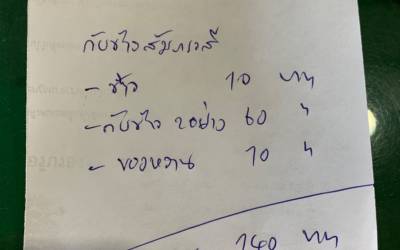 กับข้าวสัมภเวสี
- ข้าว 10 บาท
- กับข้าว 2อย่าง 60 "
- ของหวาน 70 "
140 บาท